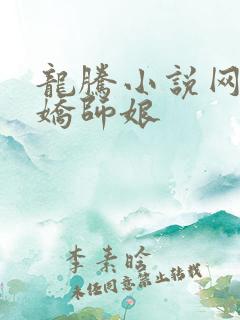 龍騰小说网
嬌師娘
李素晗
未经同意禁止转载